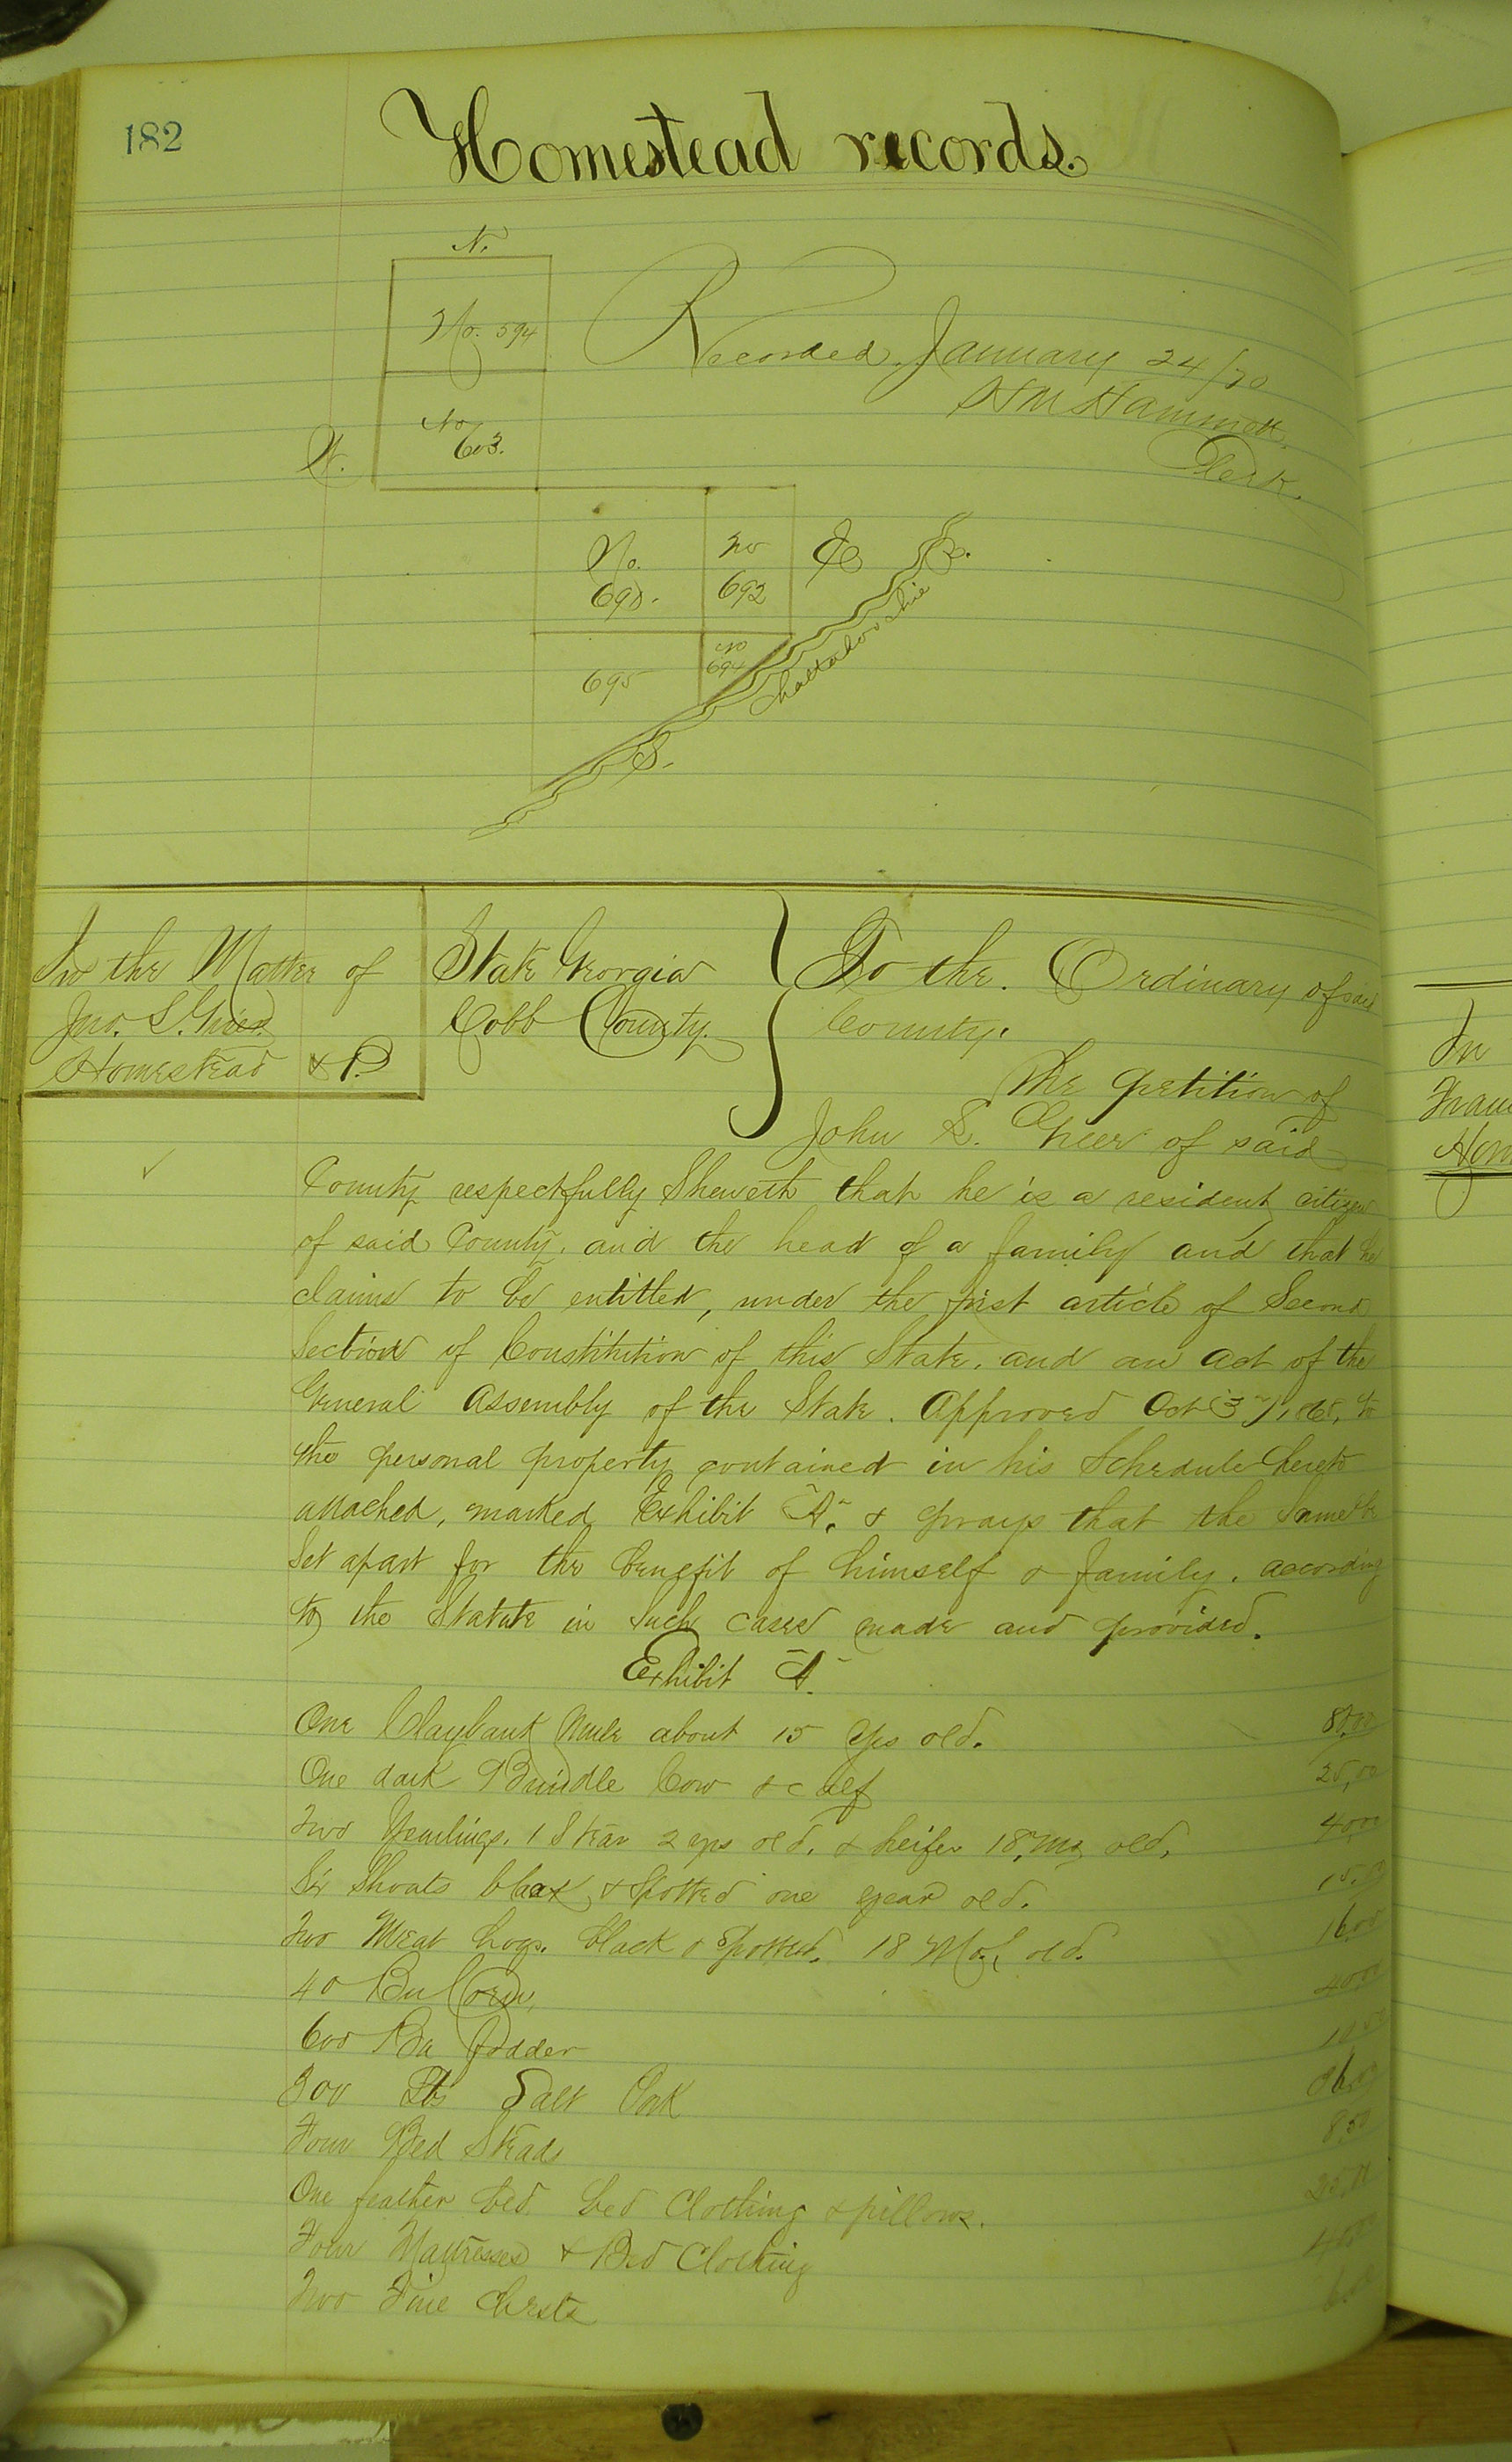 182
Homestead records.
N.
No. 594
Recorded. January 24/70
H M Hammett
Clerk.
W.
No
603.
No.
690.
No
692
E
R.
Chattahoochie
695
No
694
S.
In the Matter of
Jno. S. Greer
Homestead & P.
State Georgia
Cobb County.
To the. Ordinary of said
County.
The petition of
John S. Greer of said
County respectfully Sheweth that he is a resident citizen
of said County. and the head of a family and that he
claims to be entitled, under the first article of Second
Section of Constitution of this State. and an act of the
General Assembly of the State. Approved Oct 3rd, to
the personal property contained in his Schedule hereto
attached, marked Exhibit "A". & prays that the Same be
Set apart for the benefit of himself & family. according
to the Statute in Such cases made and provided.
Exhibit "A"
One Claybank Mule about 15 yrs old.
One dark Brindle Cow & calf 25,00
Two Yearlings. 1 Stear 2 yrs old. & heifer 18, mos old,
Six Shoats black & Spotted one year old.
Two Meat hogs. black & Spotted. 18 Mos, old. 16.00
40 Bu Corn, 40,00
600 Ba fodder
300 lbs Salt Pork
Four Bed Steads 8,50
One feather bed, bed Clothing & pillows.
Four Mattresses & Bed Clothing
Two Pine Chests
In
Hom